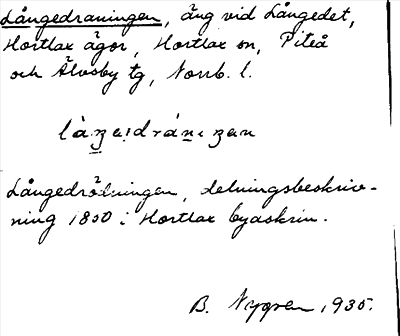 Långedraningen, äng vid Långedet,
Hortlax ägor, Hortlax sn, Piteå
och Älvsby tg, Norrb. l.
Långedrötningen, delningsbeskriv-
ning 1850 i Hortlax byaskrin.
B. Nygren, 1935.